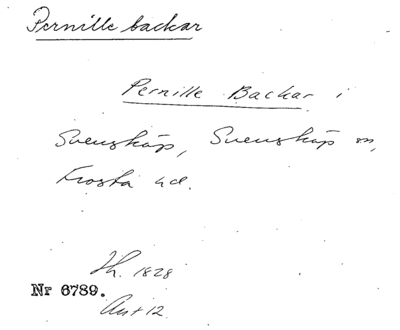 Pernille backar
Pernille Backar i
Svensköp, Svensköp sn,
Frosta hd.
Th. 1828
Nr 6789.
Ant 12